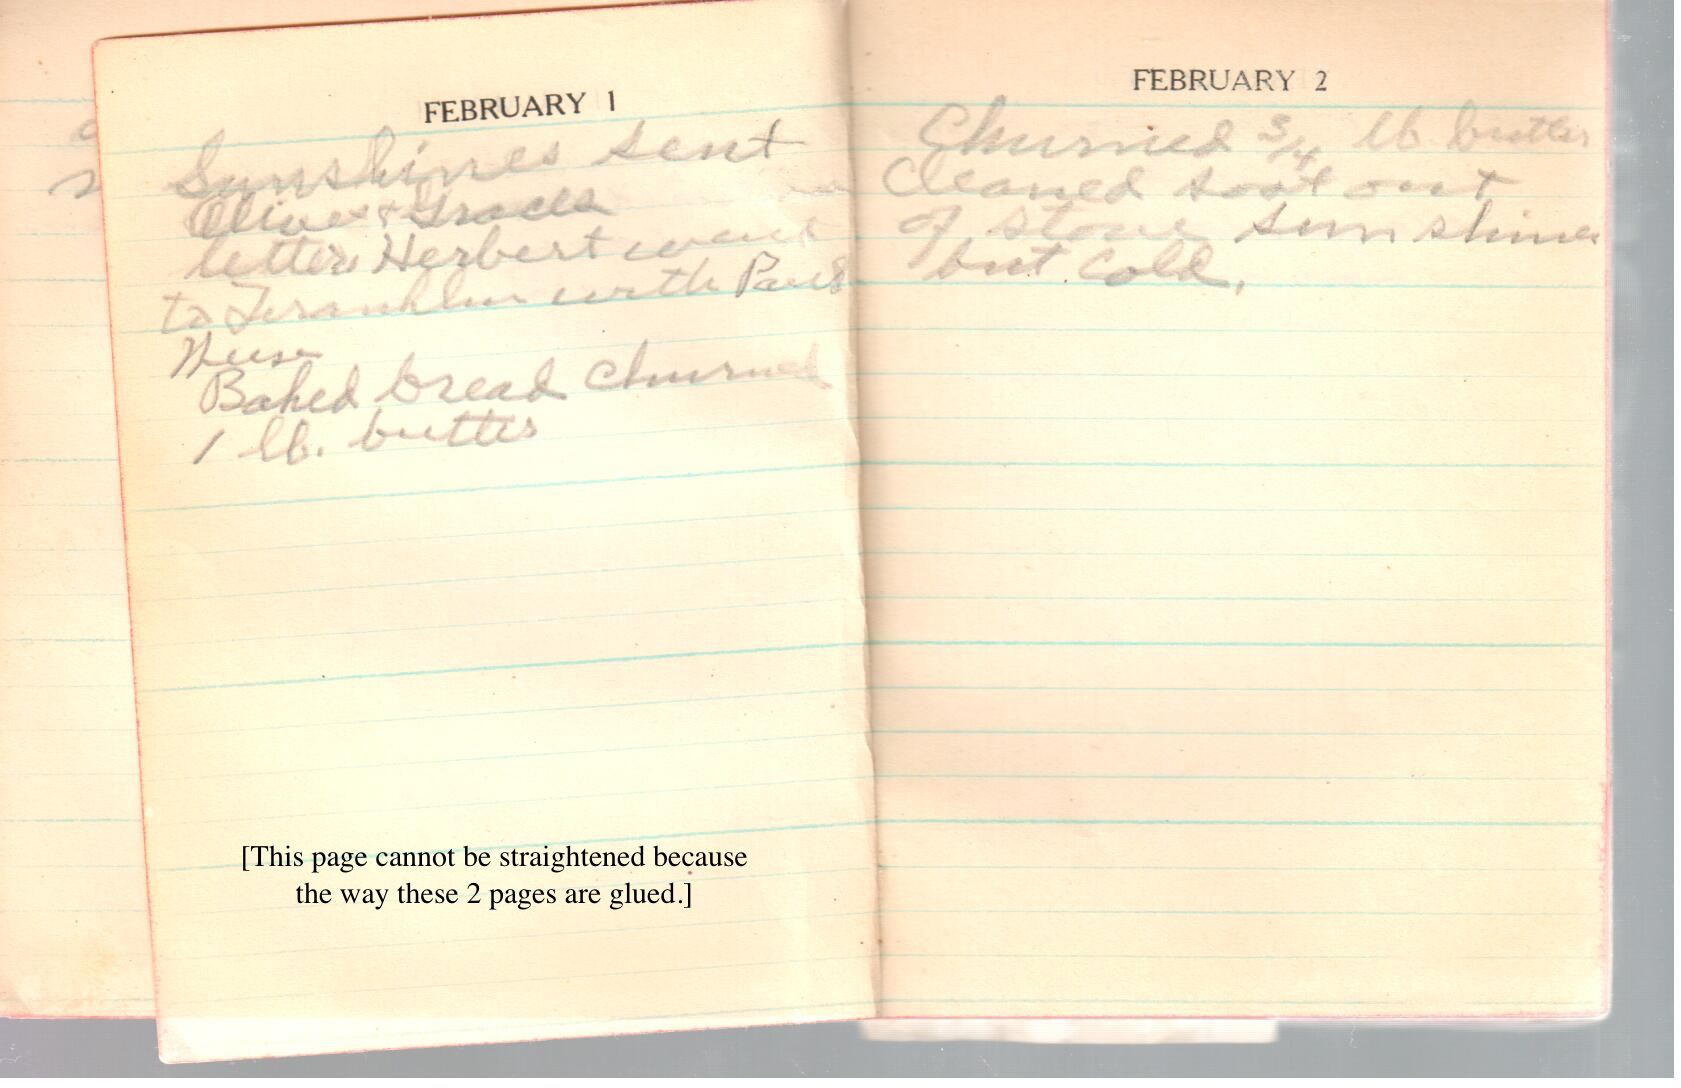 FEBRUARY 1
Sunshines sent
Olive & Graces
letter, Herbert went
to Franklin with Paul
Baked bread churned
1 lb. butter
[This page cannot be straightened because
the way these 2 pages are glued.]
FEBRUARY 2
Churned 3/4 lb butter
Cleaned soot out
of stove sunshines
but cold.